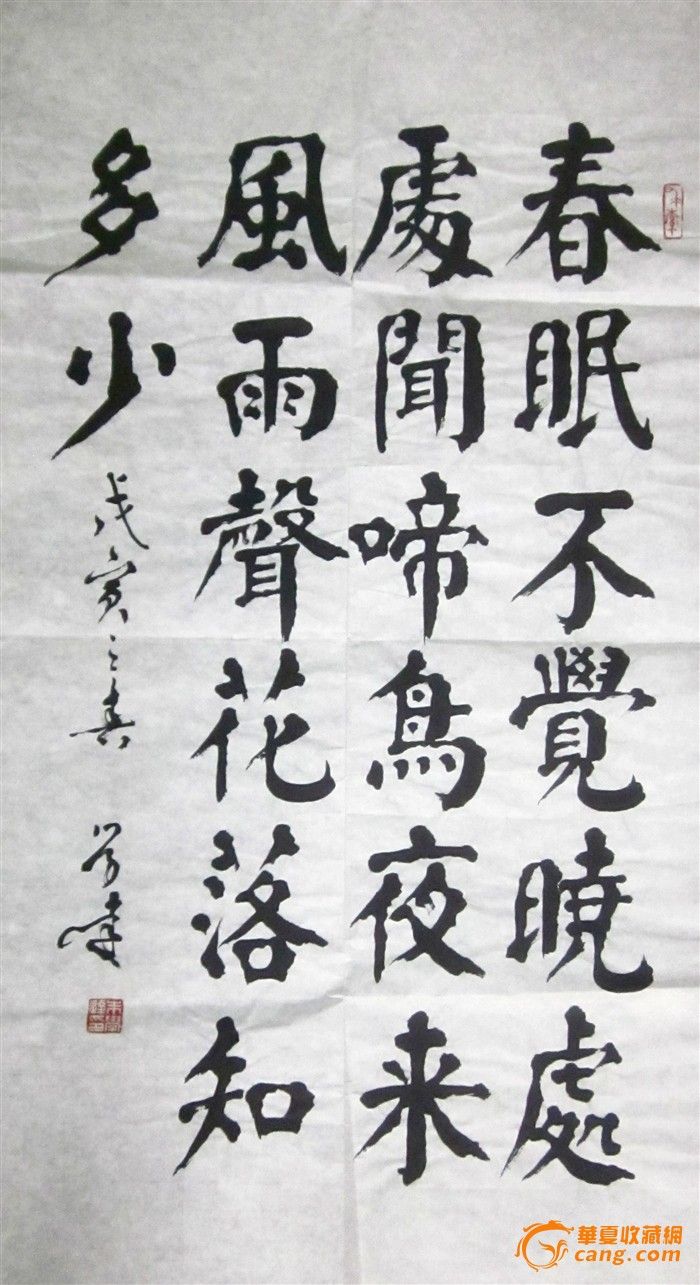 春眠不覺曉處
處聞啼鳥夜来
風雨聲花落知
多少
戊寅之春
華夏收藏網
cang.com